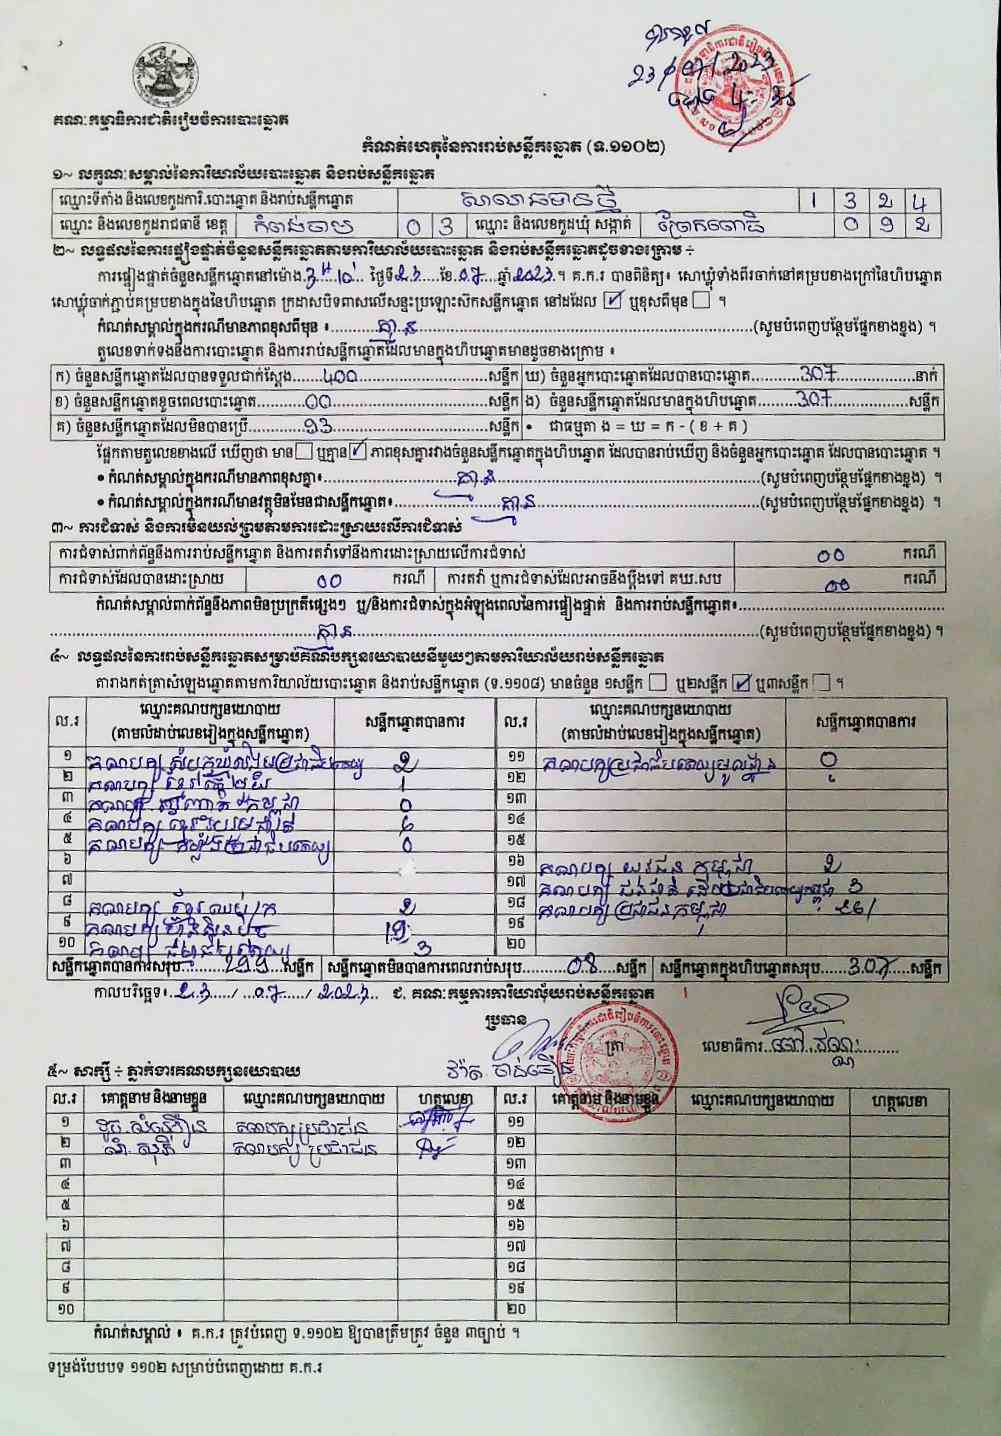 គណៈកម្មាធិការជាតិរៀបចំការបោះឆ្នោត
23/07/2023
កំណត់ហេតុនៃការរាប់សន្លឹកឆ្នោត (ទ.១១០២)
១~ លក្ខណៈសម្គាល់នៃការិយាល័យបោះឆ្នោត និងរាប់សន្លឹកឆ្នោត
ឈ្មោះទីតាំង និងលេខកូដការិ.បោះឆ្នោត និងរាប់សន្លឹកឆ្នោត 1 3 2 4
ឈ្មោះ និងលេខកូដរាជធានី ខេត្ត កំពង់ចាម 0 3 ឈ្មោះ និងលេខកូដឃុំ សង្កាត់ ព្រែកពោធិ៍ 0 9 2
២~ លទ្ធផលនៃការផ្ទៀងផ្ទាត់ចំនួនសន្លឹកឆ្នោតតាមការិយាល័យបោះឆ្នោត និងរាប់សន្លឹកឆ្នោតដូចខាងក្រោម ÷
ការផ្ទៀងផ្ទាត់ចំនួនសន្លឹកឆ្នោតនៅម៉ោង 3H 10' ថ្ងៃទី 23 ខែ 07 ឆ្នាំ 2023 ។ គ.ក.រ បានពិនិត្យ៖ សោឃ្លុំទាំងពីរចាក់នៅគម្របខាងក្រៅនៃហិបឆ្នោត
សោឃ្លុំចាក់ភ្ជាប់គម្របខាងក្នុងនៃហិបឆ្នោត ក្រដាសបិទពាសលើសន្ទះប្រឡោះស៊កសន្លឹកឆ្នោត នៅដដែល ☑ ឬខុសពីមុន ☐ ។
កំណត់សម្គាល់ក្នុងករណីមានភាពខុសពីមុន ៖ គ្មាន (សូមបំពេញបន្ថែមផ្នែកខាងខ្នង) ។
តួលេខទាក់ទងនឹងការបោះឆ្នោត និងការរាប់សន្លឹកឆ្នោតដែលមានក្នុងហិបឆ្នោតមានដូចខាងក្រោម ៖
ក) ចំនួនសន្លឹកឆ្នោតដែលបានទទួលជាក់ស្តែង 400 សន្លឹក ឃ) ចំនួនអ្នកបោះឆ្នោតដែលបានបោះឆ្នោត 307 នាក់
ខ) ចំនួនសន្លឹកឆ្នោតខូចពេលបោះឆ្នោត 00 សន្លឹក ង) ចំនួនសន្លឹកឆ្នោតដែលមានក្នុងហិបឆ្នោត 307 សន្លឹក
គ) ចំនួនសន្លឹកឆ្នោតដែលមិនបានប្រើ 93 សន្លឹក • ជាធម្មតា ង = ឃ = ក - ( ខ + គ )
ផ្អែកតាមតួលេខខាងលើ ឃើញថា មាន ☐ ឬគ្មាន ☑ ភាពខុសគ្នារវាងចំនួនសន្លឹកឆ្នោតក្នុងហិបឆ្នោត ដែលបានរាប់ឃើញ និងចំនួនអ្នកបោះឆ្នោត ដែលបានបោះឆ្នោត ។
• កំណត់សម្គាល់ក្នុងករណីមានភាពខុសគ្នា៖ គ្មាន (សូមបំពេញបន្ថែមផ្នែកខាងខ្នង) ។
• កំណត់សម្គាល់ក្នុងករណីមានវត្ថុមិនមែនជាសន្លឹកឆ្នោត៖ គ្មាន (សូមបំពេញបន្ថែមផ្នែកខាងខ្នង) ។
៣~ ការជំទាស់ និងការមិនយល់ព្រមតាមការដោះស្រាយលើការជំទាស់
ការជំទាស់ពាក់ព័ន្ធនឹងការរាប់សន្លឹកឆ្នោត និងការតវ៉ាទៅនឹងការដោះស្រាយលើការជំទាស់ 00 ករណី
ការជំទាស់ដែលបានដោះស្រាយ 00 ករណី ការតវ៉ា ឬការជំទាស់ដែលអាចនឹងប្តឹងទៅ គឃ.សប 00 ករណី
កំណត់សម្គាល់ពាក់ព័ន្ធនឹងភាពមិនប្រក្រតីផ្សេងៗ ឬ/និងការជំទាស់ក្នុងអំឡុងពេលនៃការផ្ទៀងផ្ទាត់ និងការរាប់សន្លឹកឆ្នោត៖
គ្មាន (សូមបំពេញបន្ថែមផ្នែកខាងខ្នង) ។
៤~ លទ្ធផលនៃការរាប់សន្លឹកឆ្នោតសម្រាប់គណបក្សនយោបាយនីមួយៗតាមការិយាល័យរាប់សន្លឹកឆ្នោត
តារាងកត់ត្រាសំឡេងឆ្នោតតាមការិយាល័យបោះឆ្នោត និងរាប់សន្លឹកឆ្នោត (ទ.១១០៨) មានចំនួន ១សន្លឹក ☐ ឬ២សន្លឹក ☑ ឬ៣សន្លឹក ☐ ។
ល.រ ឈ្មោះគណបក្សនយោបាយ (តាមលំដាប់លេខរៀងក្នុងសន្លឹកឆ្នោត) សន្លឹកឆ្នោតបានការ ល.រ ឈ្មោះគណបក្សនយោបាយ (តាមលំដាប់លេខរៀងក្នុងសន្លឹកឆ្នោត) សន្លឹកឆ្នោតបានការ
១ គណបក្ស សំបុកឃ្មុំសង្គមប្រជាធិបតេយ្យ 2 ១១ គណបក្សប្រជាធិបតេយ្យមូលដ្ឋាន 0
២ គណបក្ស ខ្មែរ 1 ១២
៣ គណបក្ស កម្ពុជា 0 ១៣
៤ គណបក្ស ខ្មែររួបរួមជាតិ 6 ១៤
៥ គណបក្ស កម្លាំងប្រជាធិបតេយ្យ 0 ១៥
៦ ១៦ គណបក្ស យុវជនកម្ពុជា 2
៧ ១៧ គណបក្ស 3
៨ គណបក្ស 2 ១៨ គណបក្ស ប្រជាជនកម្ពុជា 261
៩ គណបក្ស ហ៊្វុនស៊ិនប៉ិច 19 ១៩
១០ គណបក្ស 3 ២០
សន្លឹកឆ្នោតបានការសរុប 299 សន្លឹក សន្លឹកឆ្នោតមិនបានការពេលរាប់សរុប 08 សន្លឹក សន្លឹកឆ្នោតក្នុងហិបឆ្នោតសរុប 307 សន្លឹក
កាលបរិច្ឆេទ៖ 23 / 07 / 2023 ជ. គណៈកម្មការការិយាល័យរាប់សន្លឹកឆ្នោត
ប្រធាន ត្រា លេខាធិការ
៥~ សាក្សី ÷ ភ្នាក់ងារគណបក្សនយោបាយ
ល.រ គោត្តនាម និងនាមខ្លួន ឈ្មោះគណបក្សនយោបាយ ហត្ថលេខា ល.រ គោត្តនាម និងនាមខ្លួន ឈ្មោះគណបក្សនយោបាយ ហត្ថលេខា
១ គណបក្សប្រជាជន ១១
២ គណបក្ស ប្រជាជន ១២
៣ ១៣
៤ ១៤
៥ ១៥
៦ ១៦
៧ ១៧
៨ ១៨
៩ ១៩
១០ ២០
កំណត់សម្គាល់ ៖ គ.ក.រ ត្រូវបំពេញ ទ.១១០២ ឱ្យបានត្រឹមត្រូវ ចំនួន ៣ច្បាប់ ។
ទម្រង់បែបបទ ១១០២ សម្រាប់បំពេញដោយ គ.ក.រ